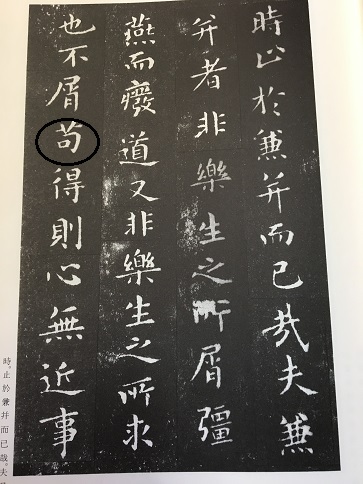 時止於兼并而已哉夫兼
并者非樂生之所屑彊
燕而廢道又非樂生之所求
也不屑苟得則心無近事
時。止於兼并而已哉。夫